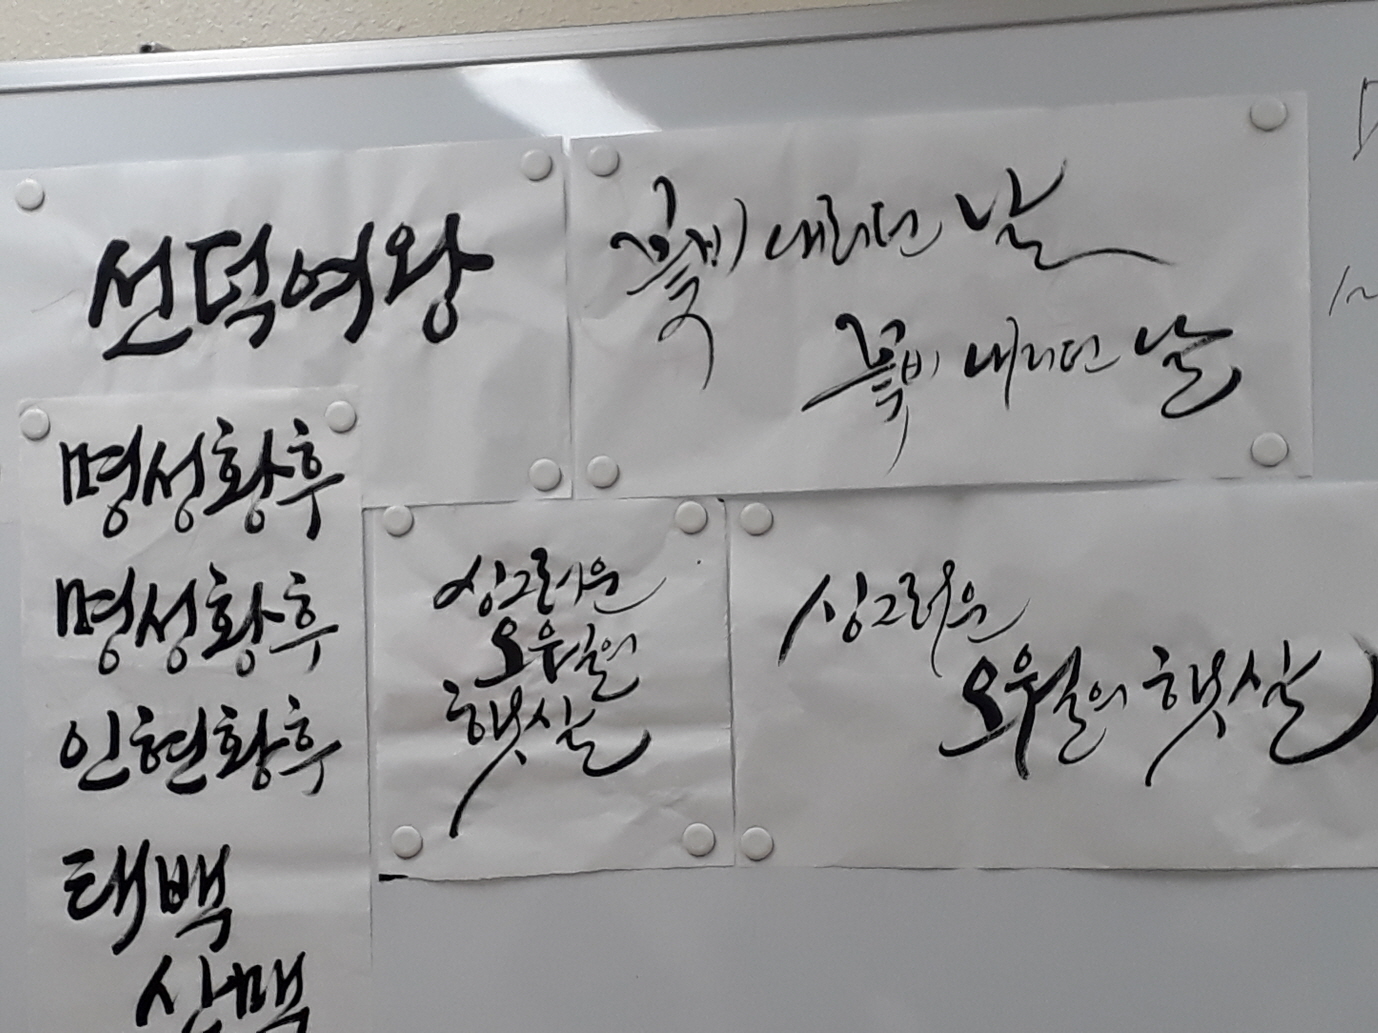 선덕여왕
꽃비 내리던 날
꽃비 내리던 날
명성황후
명성황후
인현황후
태백
산맥
싱그러운
오월의
햇살
싱그러운
오월의 햇살